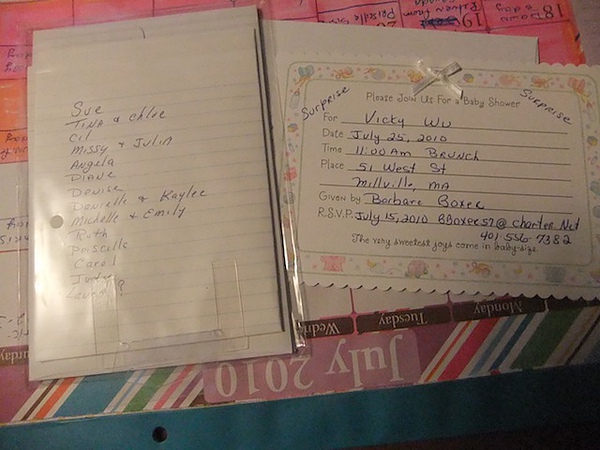 Sue
Tina & Chloe
Cil
Missy & Julia
Angela
Diane
Denise
Danielle & Kaylee
Michelle & Emily
Ruth
Priscilla
Carol
Judy
Surprise
Surprise
Please Join Us For a Baby Shower
For Vicky Wu
Date July 25, 2010
Time 11:00 Am Brunch
Place 51 West St
Millville, MA
Given by Barbara Boxer
R.S.V.P. July 15, 2010 BBoxer57@charter.net
401 556-7382
The very sweetest joys come in baby-size.
18
19
Monday
Tuesday
July 2010